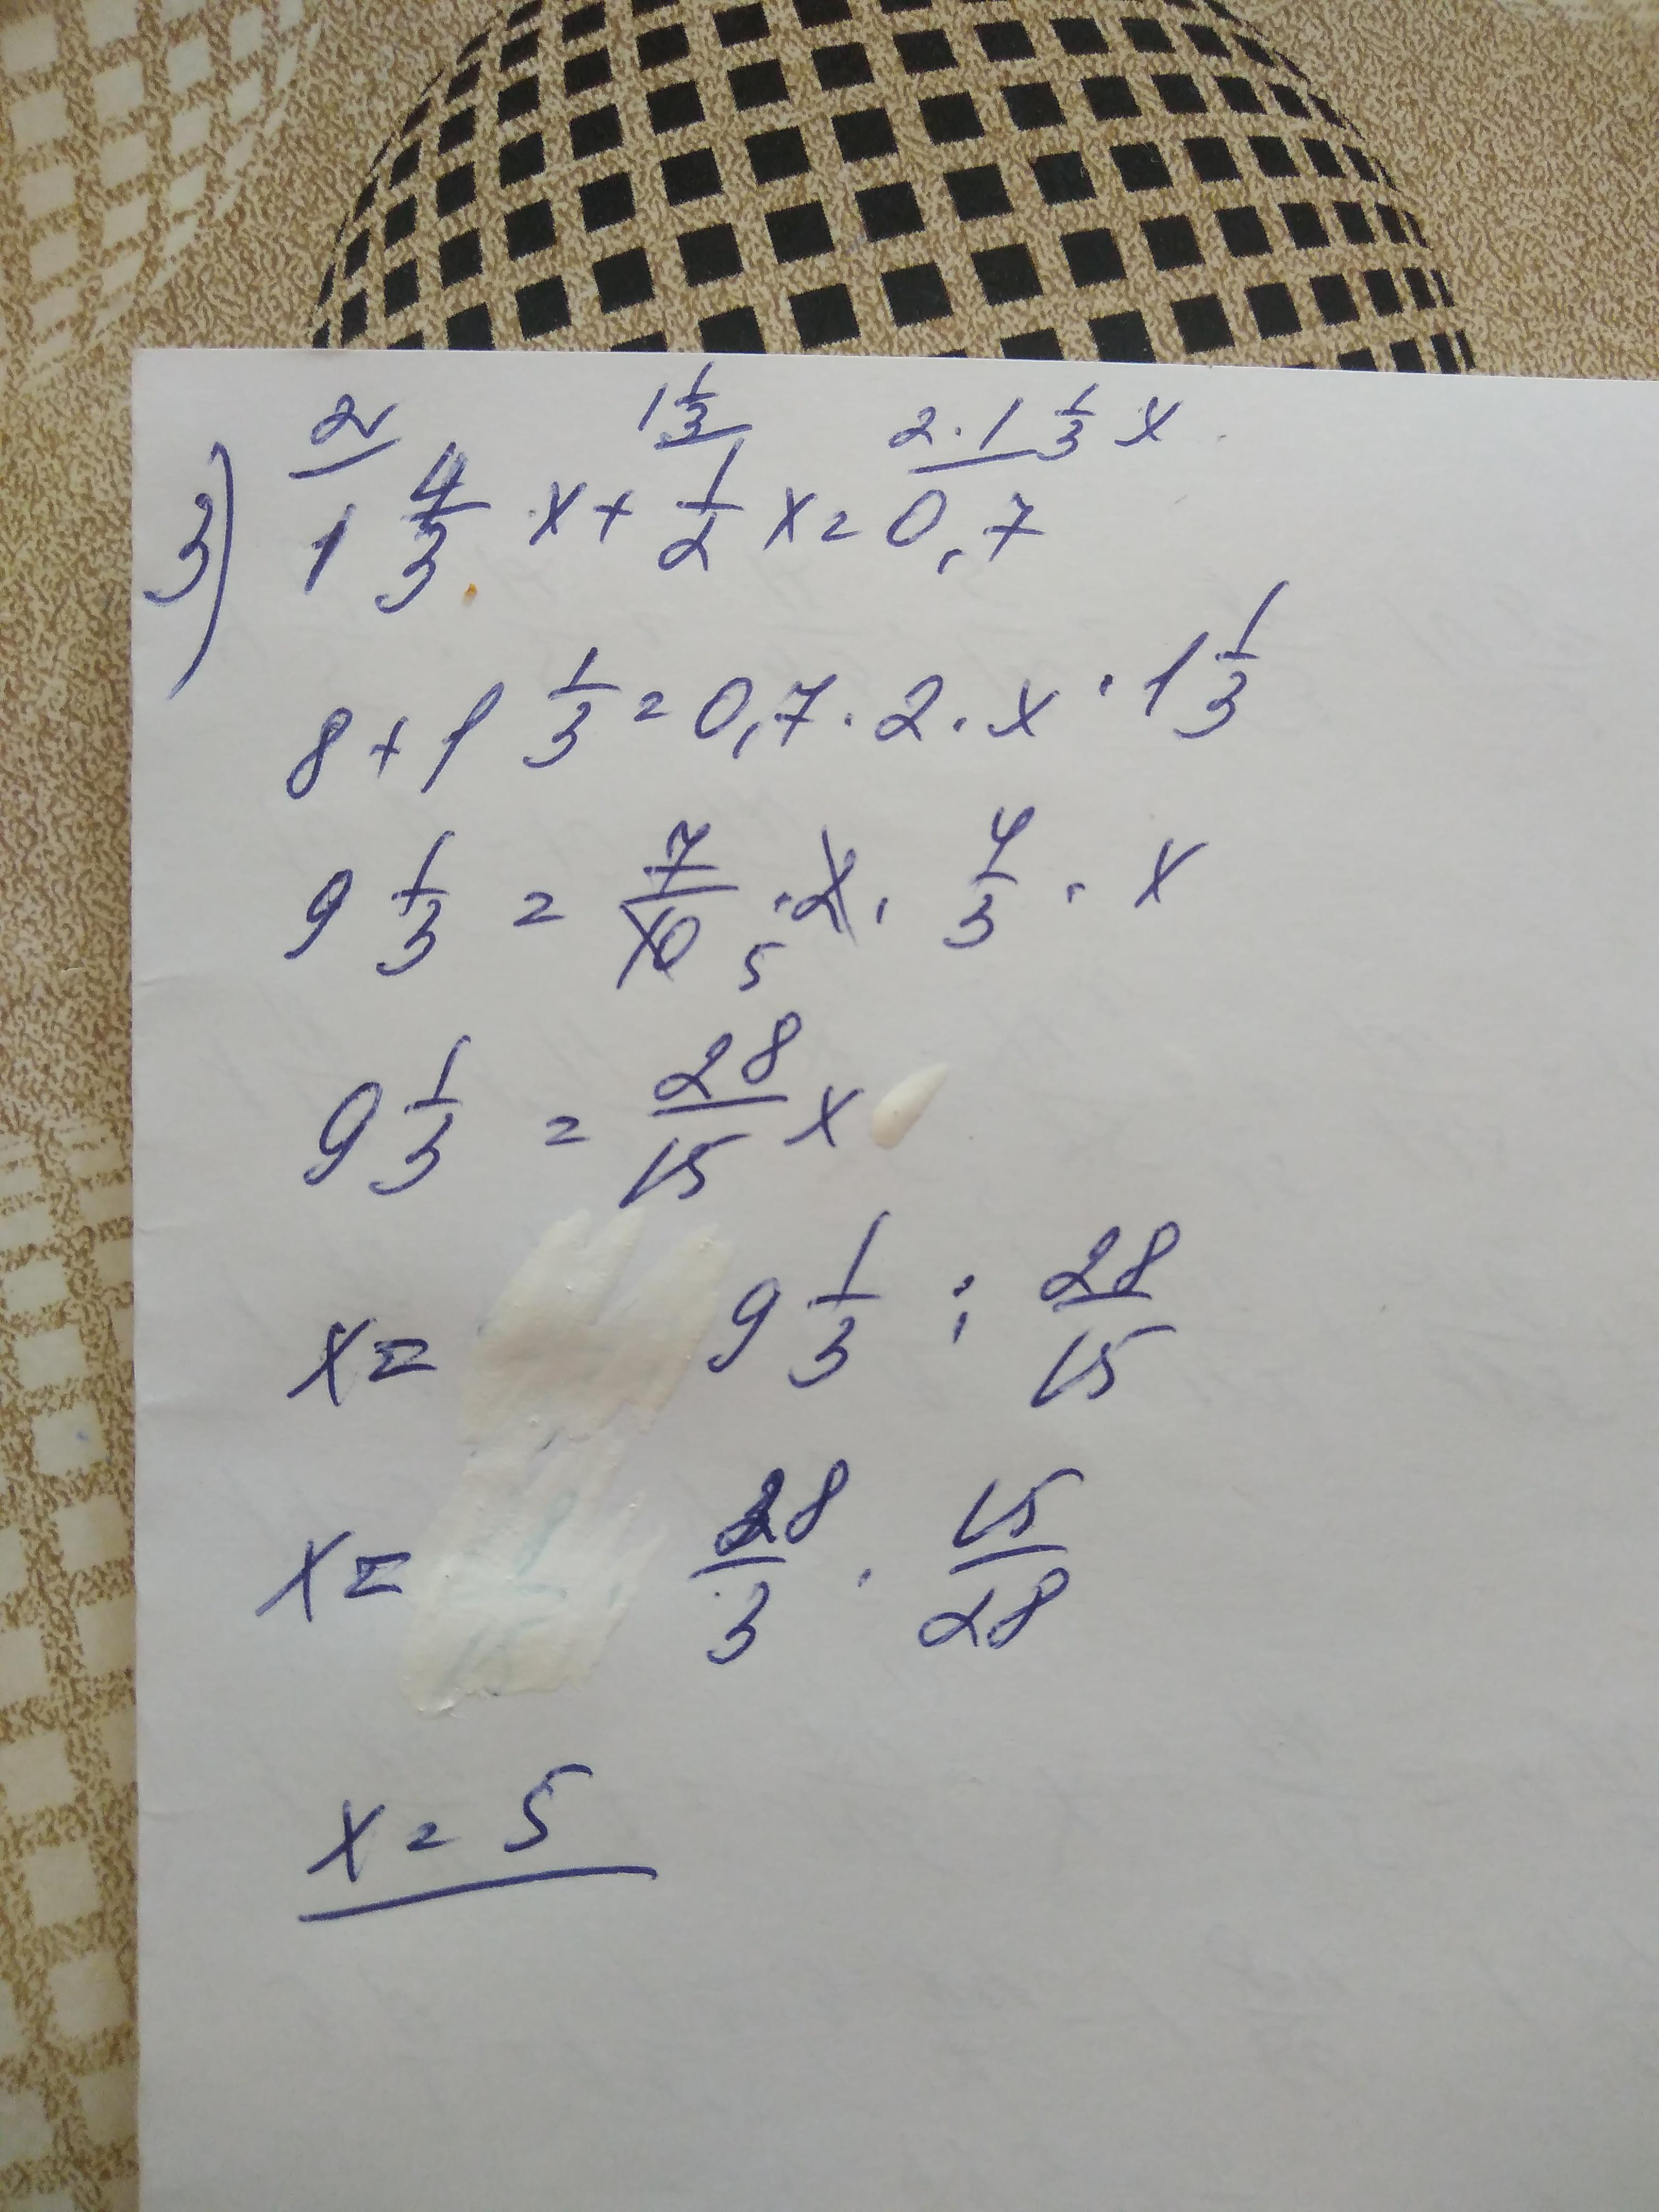 2 1 1/3 2·1 1/3 x
3) 4/(1 1/3 x) + 1/(2x) = 0,7
8 + 1 1/3 = 0,7 · 2 · x · 1 1/3
9 1/3 = 7/10 5 · 2 · 4/3 · x
9 1/3 = 28/15 x
x = 9 1/3 : 28/15
x = 28/3 · 15/28
x = 5